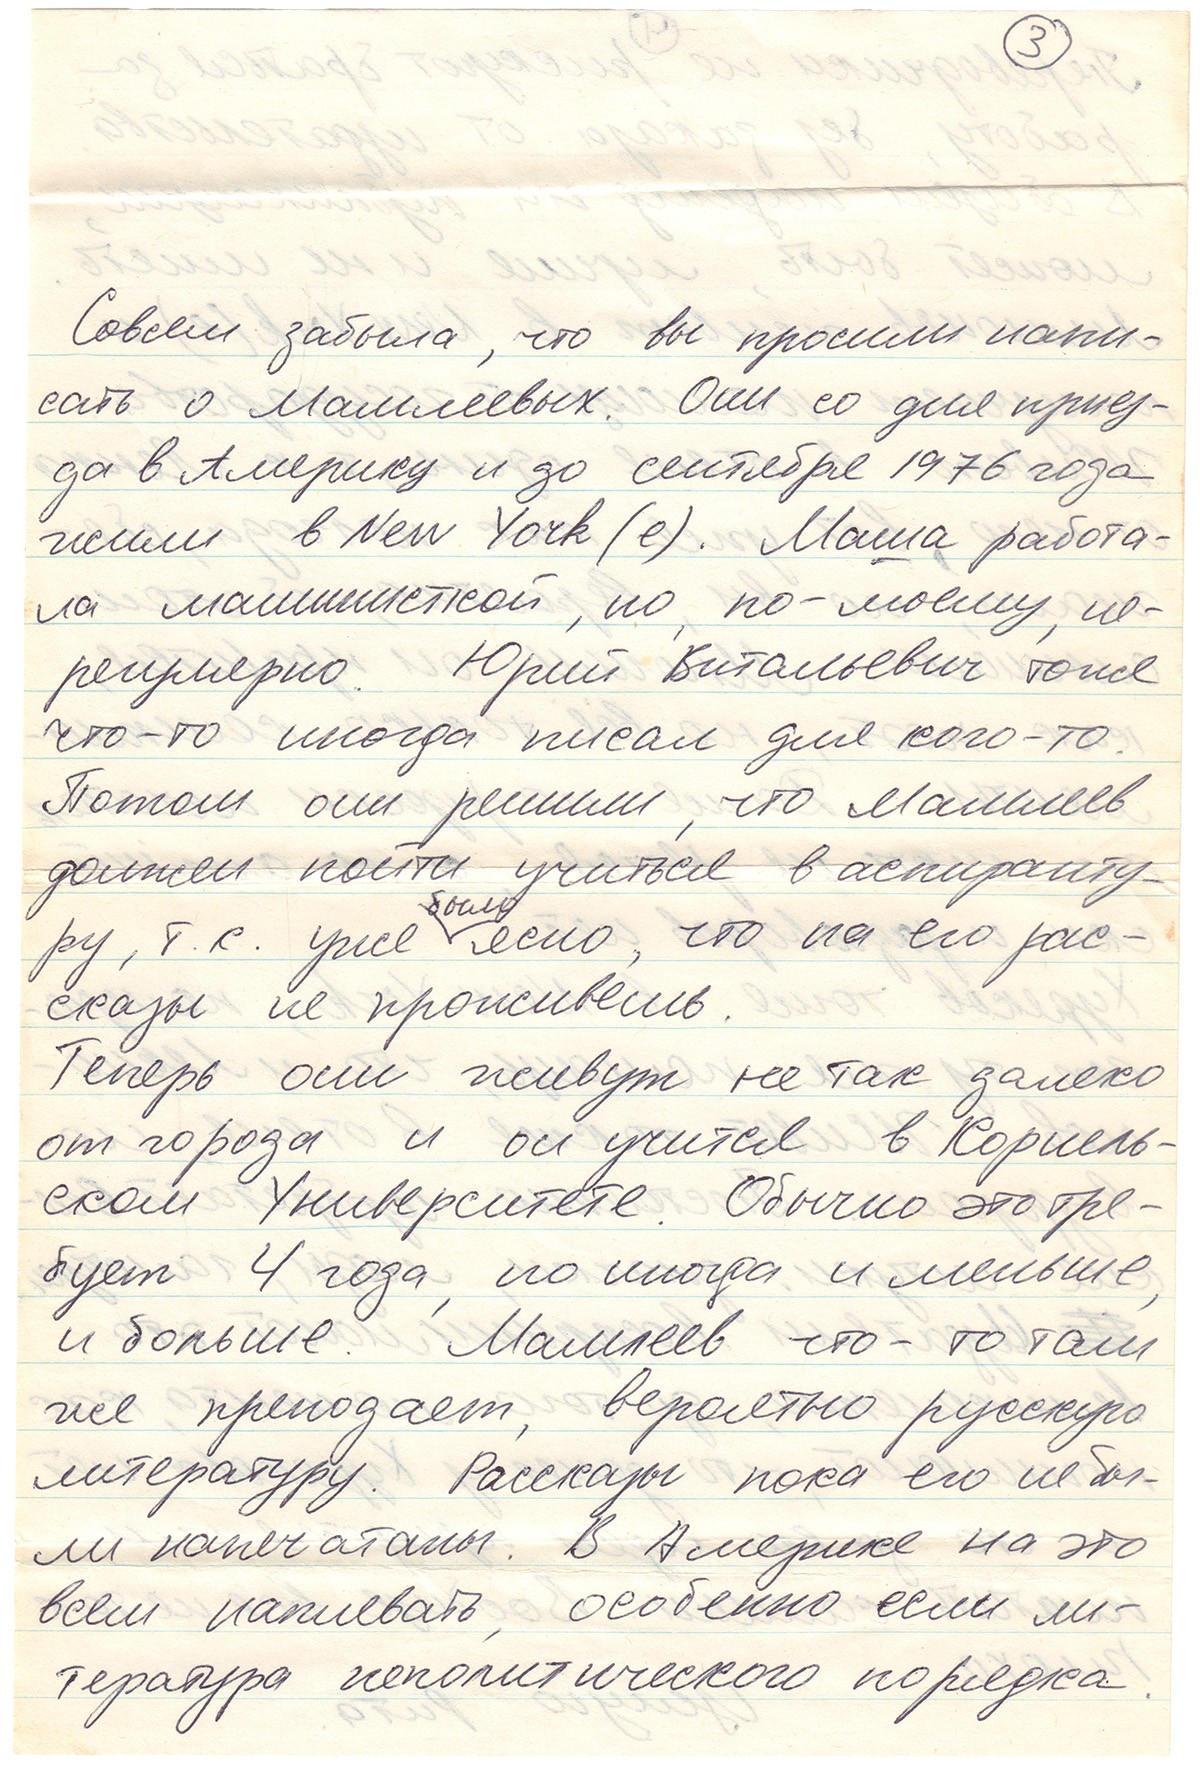 3
Совсем забыла, что вы просили напи-
сать о Мамлеевых. Они со дня приез-
да в Америку и до сентября 1976 года
жили в New York(е). Маша работа-
ла машинисткой, но, по-моему, не-
регулярно. Юрий Витальевич тоже
что-то иногда писал для кого-то.
Потом они решили, что Мамлеев
должен пойти учиться в аспиранту-
ру, т.к. уже было ясно, что на его рас-
сказы не проживешь.
Теперь они живут не так далеко
от города и он учится в Корнель-
ском Университете. Обычно это тре-
бует 4 года, но иногда и меньше,
и больше. Мамлеев что-то там
же преподает, вероятно русскую
литературу. Рассказы пока его не бы-
ли напечатаны. В Америке на это
всем наплевать, особенно если ли-
тература неполитического порядка.